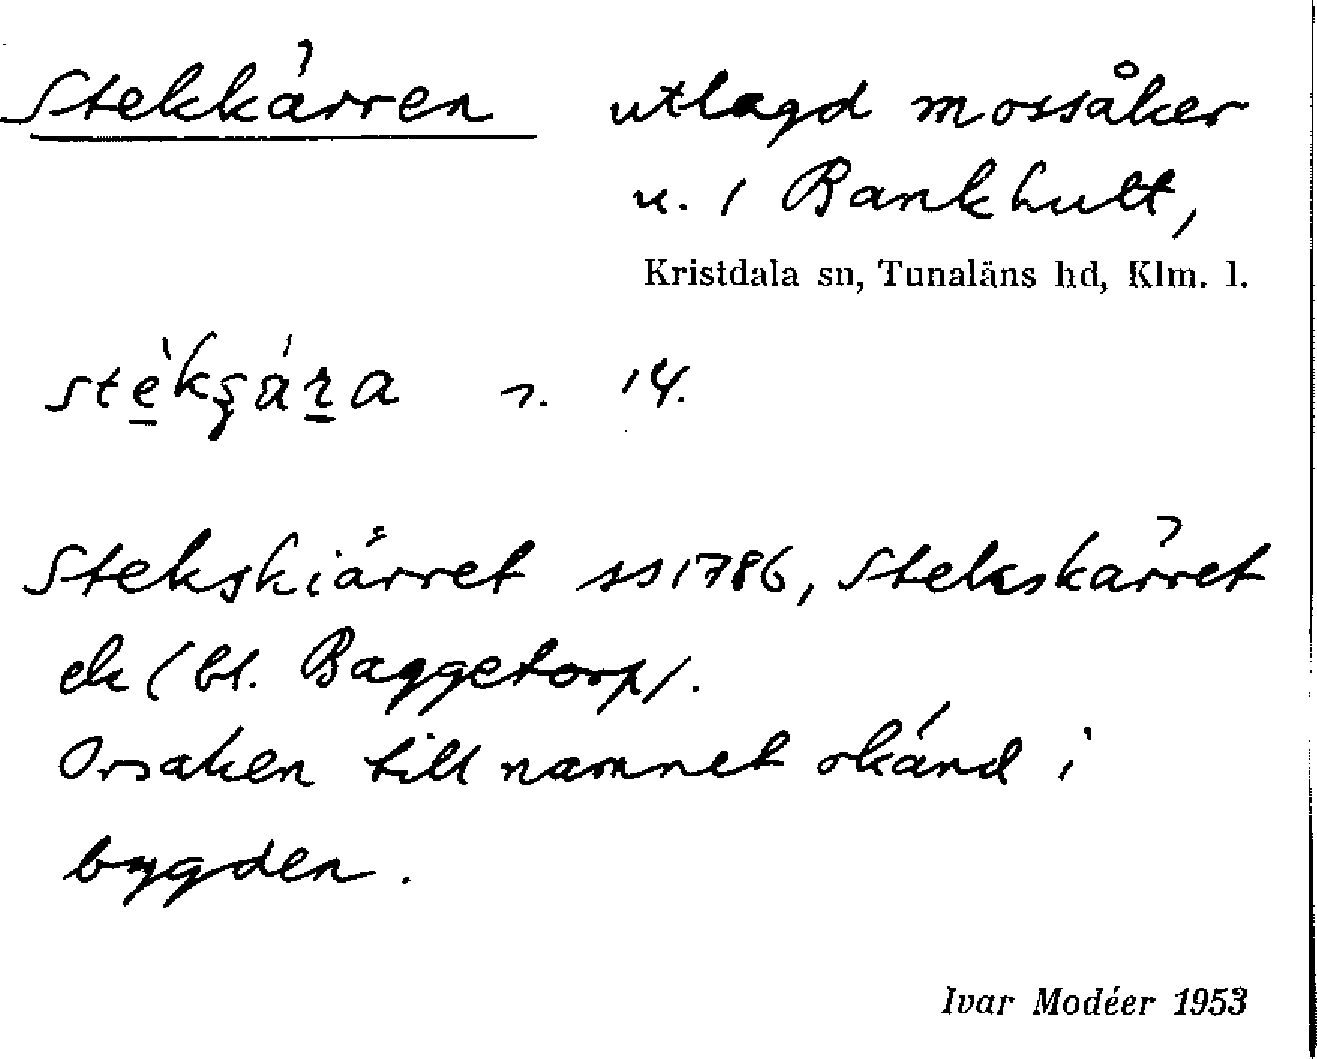 Stekkärren utlagd mossåker
u. 1 Bankhult,
Kristdala sn, Tunaläns hd, Klm. l.
14.
Stekskiärret ss 1786, Stekskärret
ek (bl. Baggetorp).
Orsaken till namnet okänd i
bygden.
Ivar Modéer 1953